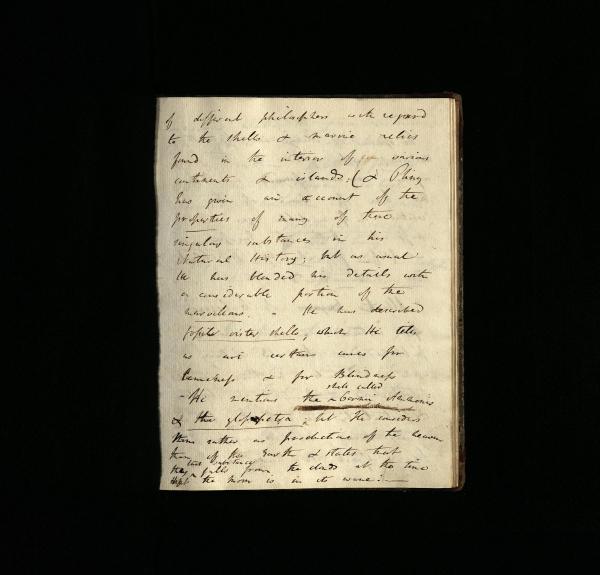 of different philosophers with regard
to the shells & marine relics
found in the interior of various
continents & islands; (& Pliny
has given an account of the
properties of many of these
singular substances in his
Natural History; but as usual
He has blended his details with
a considerable portion of the
marvellous. - He has described
fossile oister shells, which He tells
us are certain cures for
Lameness & for Blindness
- He mentions the shells called Cornu Ammonis
& the glossopetra, but He considers
them rather as productions of the heaven
than of the Earth & states that
this substance falls from the clouds at the time
the moon is in its wane. —